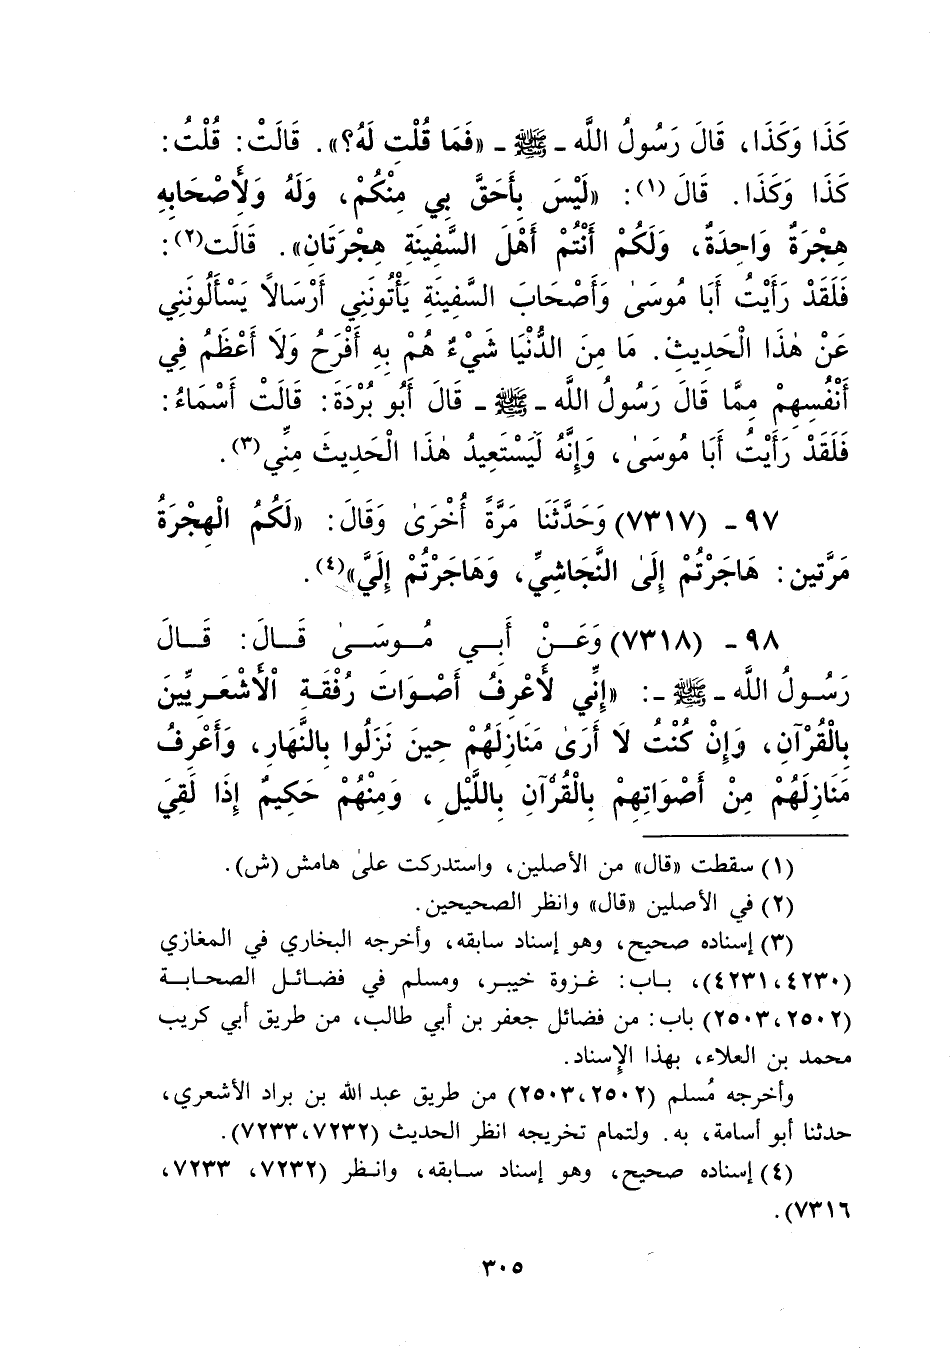 كَذَا وَكَذَا، قَالَ رَسُولُ اللَّه ـ ﷺ ـ «فَمَا قُلْتِ لَهُ؟». قَالَتْ: قُلْتُ:
كَذَا وَكَذَا. قَالَ(١): «لَيْسَ بِأَحَقَّ بِي مِنْكُمْ، وَلَهُ وَلأَصْحَابِهِ
هِجْرَةٌ وَاحِدَةٌ، وَلَكُمْ أَنْتُمْ أَهْلَ السَّفِينَةِ هِجْرَتَانِ». قَالَت(٢):
فَلَقَدْ رَأَيْتُ أَبَا مُوسَىٰ وَأَصْحَابَ السَّفِينَةِ يَأْتُونَنِي أَرْسَالاً يَسْأَلُونَنِي
عَنْ هٰذَا الْحَدِيثِ. مَا مِنَ الدُّنْيَا شَيْءٌ هُمْ بِهِ أَفْرَحُ وَلَا أَعْظَمُ فِي
أَنْفُسِهِمْ مِمَّا قَالَ رَسُولُ اللَّه ـ ﷺ ـ قَالَ أَبُو بُرْدَةَ: قَالَتْ أَسْمَاءُ:
فَلَقَدْ رَأَيْتُ أَبَا مُوسَىٰ، وَإِنَّهُ لَيَسْتَعِيدُ هٰذَا الْحَدِيثَ مِنِّي(٣).
٩٧ ـ (٧٣١٧) وَحَدَّثَنَا مَرَّةً أُخْرَىٰ وَقَالَ: «لَكُمُ الْهِجْرَةُ
مَرَّتين: هَاجَرْتُمْ إِلَىٰ النَّجَاشِيِّ، وَهَاجَرْتُمْ إِلَيَّ»(٤).
٩٨ ـ (٧٣١٨) وَعَنْ أَبِي مُوسَىٰ قَالَ: قَالَ
رَسُولُ اللَّه ـ ﷺ ـ: «إِنِّي لأَعْرِفُ أَصْوَاتَ رُفْقَةِ الْأَشْعَرِيِّينَ
بِالْقُرْآنِ، وَإِنْ كُنْتُ لَا أَرَىٰ مَنَازِلَهُمْ حِينَ نَزَلُوا بِالنَّهَارِ، وَأَعْرِفُ
مَنَازِلَهُمْ مِنْ أَصْوَاتِهِمْ بِالْقُرْآنِ بِاللَّيْلِ، وَمِنْهُمْ حَكِيمٌ إِذَا لَقِيَ
(١) سقطت «قال» من الأصلين، واستدركت علىٰ هامش (ش).
(٢) في الأصلين «قال» وانظر الصحيحين.
(٣) إسناده صحيح، وهو إسناد سابقه، وأخرجه البخاري في المغازي
(٤٢٣٠، ٤٢٣١)، باب: غزوة خيبر، ومسلم في فضائل الصحابة
(٢٥٠٢، ٢٥٠٣) باب: من فضائل جعفر بن أبي طالب، من طريق أبي كريب
محمد بن العلاء، بهذا الإسناد.
وأخرجه مُسلم (٢٥٠٢، ٢٥٠٣) من طريق عبد الله بن براد الأشعري،
حدثنا أبو أسامة، به. ولتمام تخريجه انظر الحديث (٧٢٣٢، ٧٢٣٣).
(٤) إسناده صحيح، وهو إسناد سابقه، وانظر (٧٢٣٢، ٧٢٣٣،
٧٣١٦).
٣٠٥